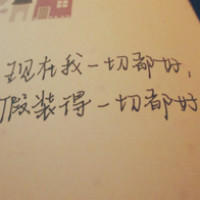 现在我一切都好,
假装得一切都好